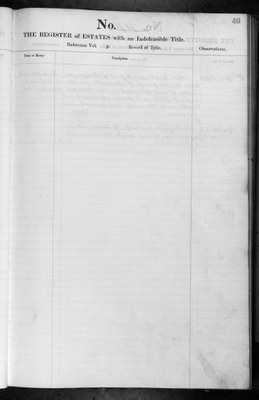 46
No.
THE REGISTER of ESTATES with an Indefeasible Title.
Record of Title.
Observations.
Date of Entry
Description